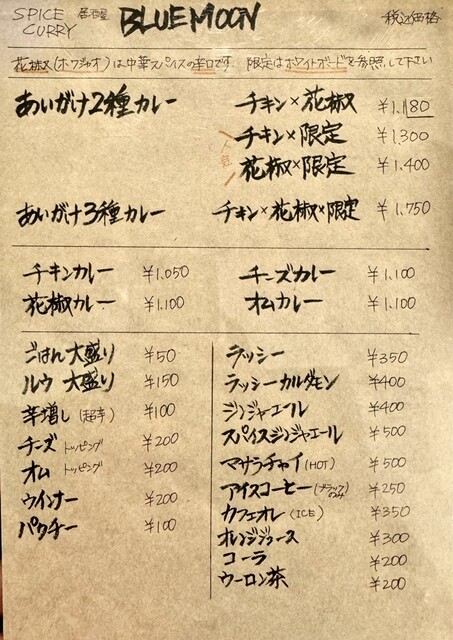 SPICE CURRY 居酒屋 BLUE MOON 税込価格
花椒(ホワジャオ)は中華スパイスの辛口です 限定はホワイトボードを参照して下さい
あいがけ2種カレー チキン×花椒 ¥1.180
人気 チキン×限定 ¥1.300
花椒×限定 ¥1.400
あいがけ3種カレー チキン×花椒×限定 ¥1.750
チキンカレー ¥1.050 チーズカレー ¥1.100
花椒カレー ¥1.100 オムカレー ¥1.100
ごはん大盛り ¥50
ルウ 大盛り ¥150
辛増し(超辛) ¥100
チーズ トッピング ¥200
オム トッピング ¥200
ウインナー ¥200
パクチー ¥100
ラッシー ¥350
ラッシーカルダモン ¥400
ジンジャエール ¥400
スパイスジンジャエール ¥500
マサラチャイ(HOT) ¥500
アイスコーヒー(ブラックのみ) ¥250
カフェオレ(ICE) ¥350
オレンジジュース ¥300
コーラ ¥200
ウーロン茶 ¥200